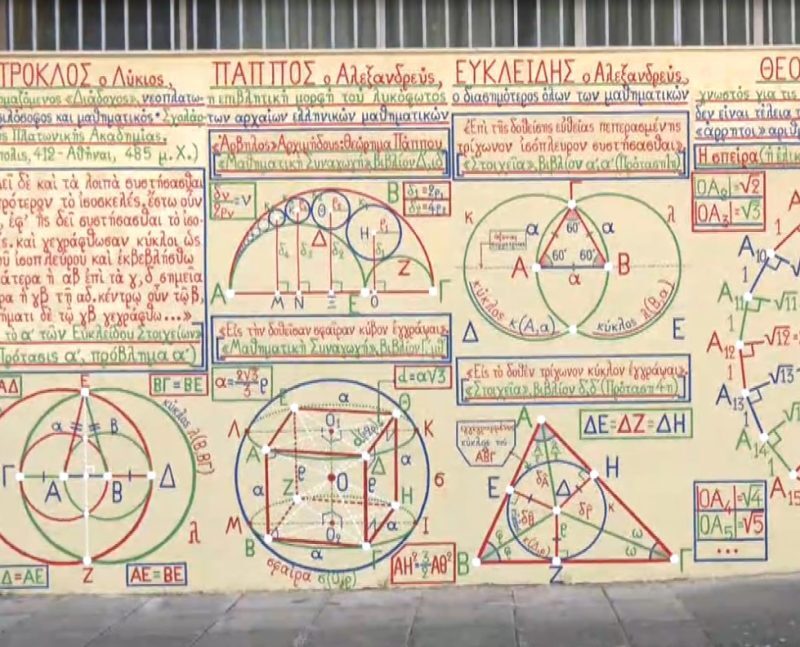 ΤΡΟΚΛΟΣ ο Λύκιος,
«Διάδοχος», νεοπλατω-
φιλόσοφος και μαθηματικός · Σχολάρ-
ς Πλατωνικῆς Ἀκαδημίας.
πολις, 412 - Ἀθῆναι, 485 μ.Χ.)
εῖ δὲ καὶ τὰ λοιπὰ συστήσασθαι
ρότερον τὸ ἰσοσκελές. ἔστω οὖν
, ἐφ' ἧς δεῖ συστήσασθαι τὸ ἰσο-
ς. καὶ γεγράφθωσαν κύκλοι ὡς
οῦ ἰσοπλεύρου καὶ ἐκβεβλήσθω
άτερα ἡ αβ ἐπὶ τὰ γ, δ σημεῖα
ρα ἡ γβ τῇ αδ. κέντρῳ οὖν τῷ β,
ήματι δὲ τῷ γβ γεγράφθω...»
τὸ α' τῶν Εὐκλείδου Στοιχείων
Πρότασις α', πρόβλημα α')
ΑΔ
ΒΓ = ΒΕ
κύκλος λ(Β,ΒΓ)
Ε
α
β
Γ
Α
Β
Δ
λ
Ζ
Δ = ΑΕ
ΑΕ = ΒΕ
ΠΑΠΠΟΣ ο Ἀλεξανδρεύς,
ἡ ἐπιβλητική μορφή τοῦ λυκόφωτος
των αρχαίων ἑλληνικῶν μαθηματικών
«Ἄρβηλος» Ἀρχιμήδους: Θεώρημα Πάππου
«Μαθηματική Συναγωγή», Βιβλίον Δ', ιδ'
δν/2ρν = ν
Β
δ₁ = 2ρ₁
δ₂ = 4ρ₂
Θ
Η
Δ
Ζ
δ₄
δ₃
δ₂
δ₁
Α
Μ
Ν
Ξ
Ε
Ο
Γ
«Εἰς τὴν δοθεῖσαν σφαῖραν κύβον ἐγγράψαι»,
«Μαθηματική Συναγωγή», Βιβλίον Γ', μδ'
α = 2√3/3 ρ
d = α√3
Ε
α
Θ
Λ
Ο₁
Κ
Α
Δ
α
ρ
Ο
ρ
α
σ
Ζ
Η
Μ
Ο₂
Ι
Β
α
Γ
α
σφαῖρα σ(Ο,ρ)
ΑΗ² = 3/2 ΑΘ²
ΕΥΚΛΕΙΔΗΣ ο Ἀλεξανδρεύς,
ο διασημότερος όλων των μαθηματικών
«Ἐπὶ τῆς δοθείσης εὐθείας πεπερασμένης
τρίγωνον ἰσόπλευρον συστήσασθαι»,
«Στοιχεῖα», Βιβλίον α', α' (Πρότασις 1η)
κ
Γ
λ
α
60°
α
Α
60°
60°
Β
α
κύκλος κ(Α,α)
κύκλος λ(Β,α)
Δ
Ε
«Εἰς τὸ δοθὲν τρίγωνον κύκλον ἐγγράψαι»,
«Στοιχεῖα», Βιβλίον δ', δ' (Πρότασις 4η)
ΔΕ = ΔΖ = ΔΗ
κύκλος του
ΑΒΓ
Α
Ε
Η
Δ
κ
ρ
φ
φ
ω
ω
Β
Ζ
Γ
ΘΕΟ
γνωστός για τις
δεν είναι τέλεια τ
«άρρητοι» αριθ
Η σπείρα (ή έλικ
ΟΑ₂ = √2
ΟΑ₃ = √3
Α
Α₁₀
1
Α₁₁
√11
1
Α₁₂
√12
1
Α₁₃
√13
1
Α₁₄
√14
1
Α₁₅
ΟΑ₄ = √4
ΟΑ₅ = √5
...